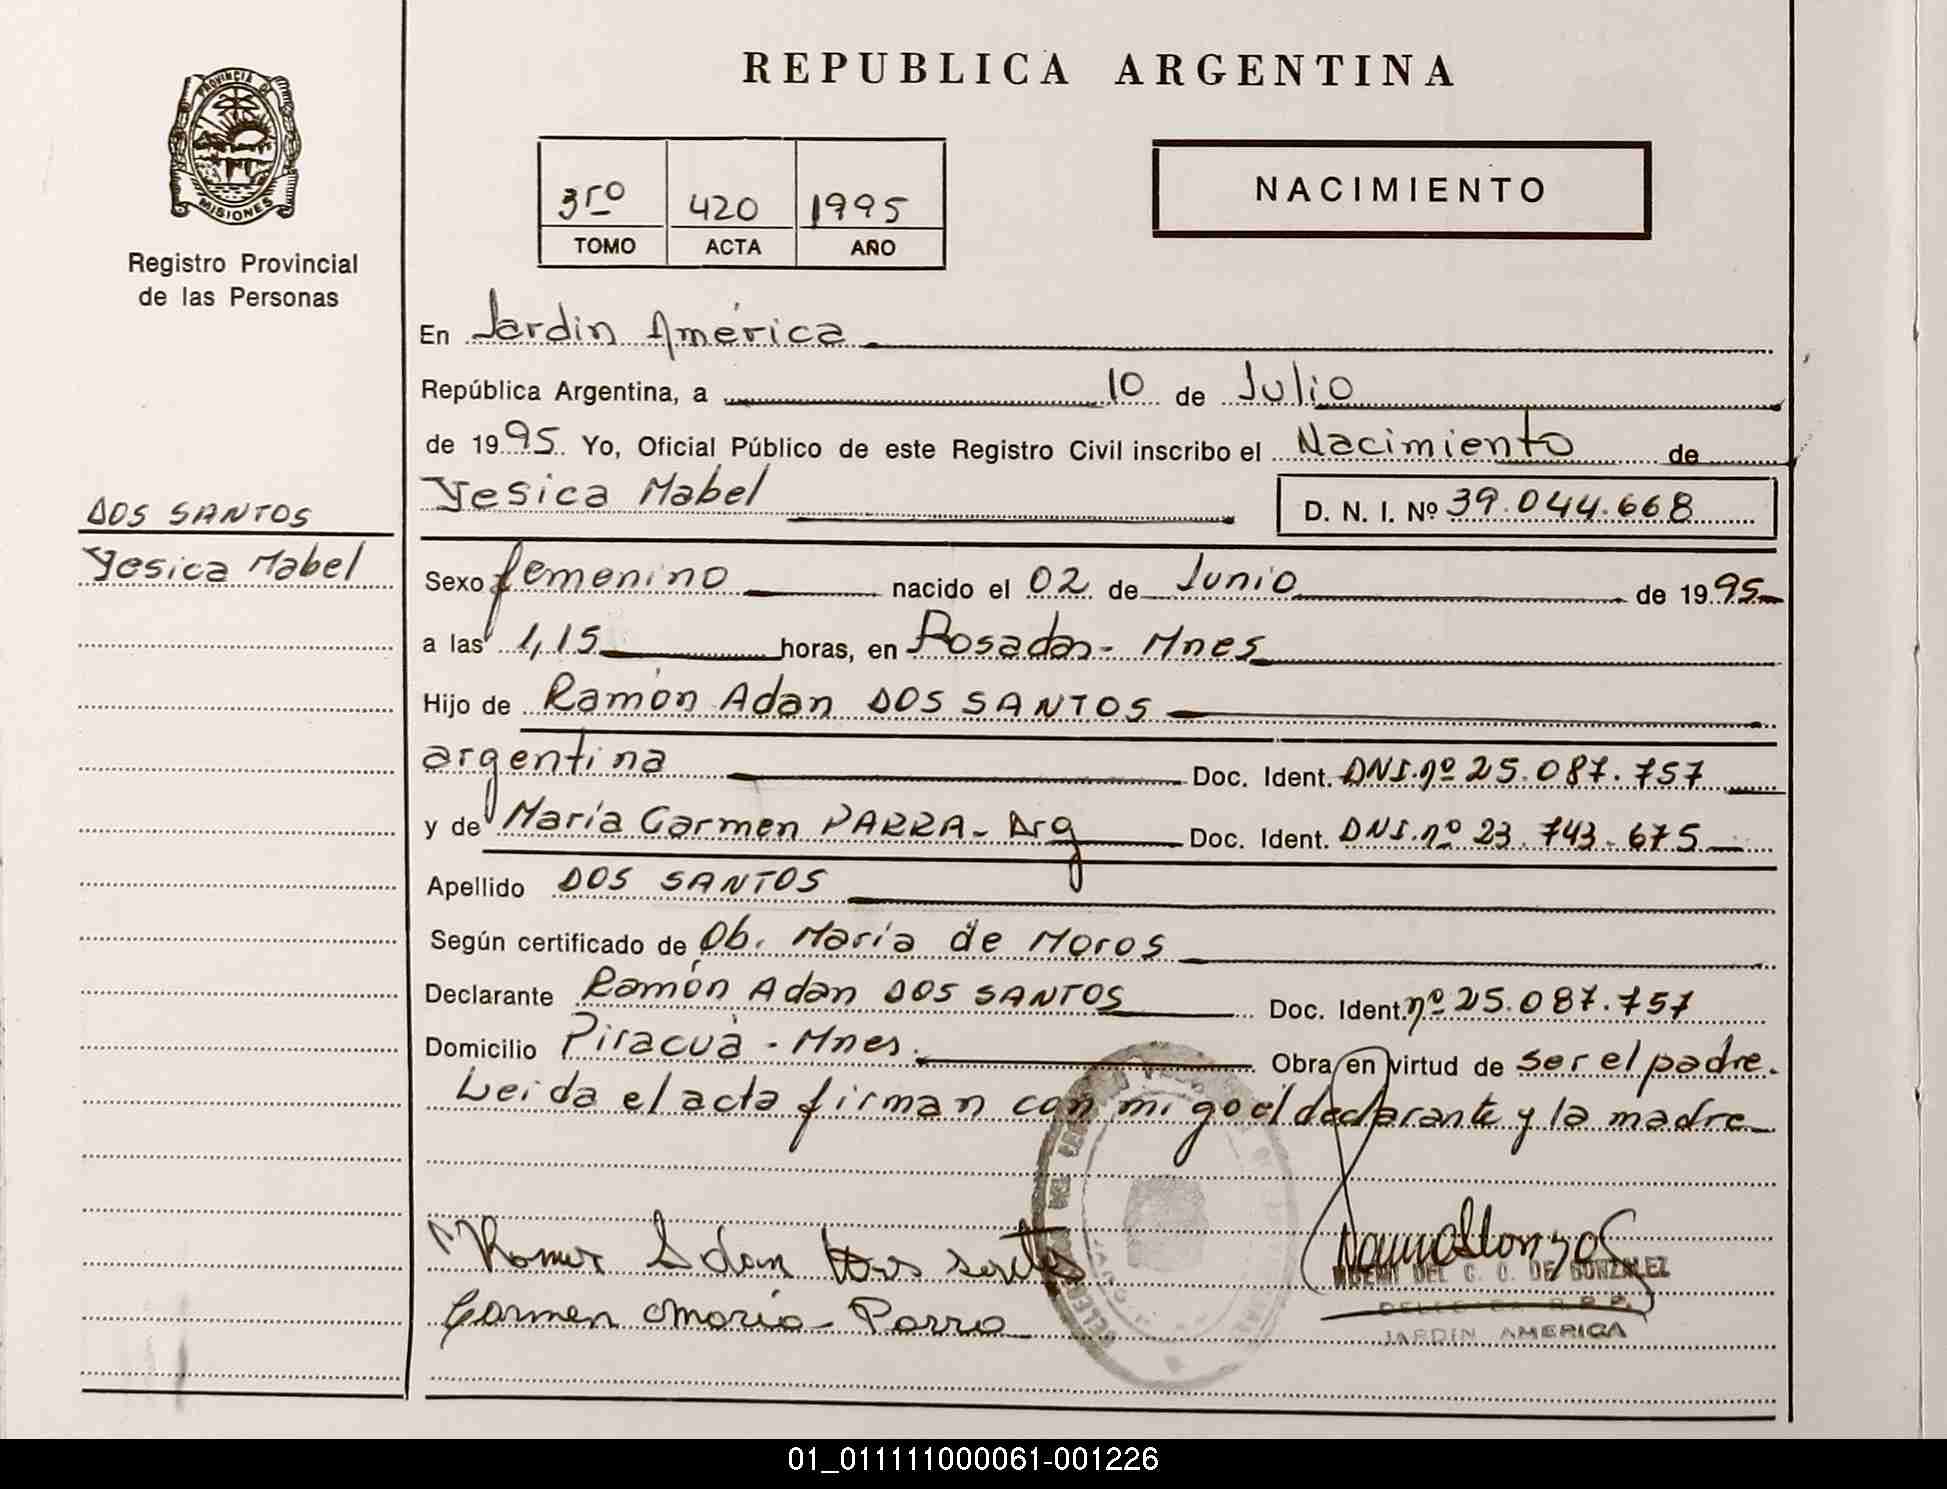 REPUBLICA ARGENTINA
PROVINCIA DE
MISIONES
Registro Provincial
de las Personas
3ro 420 1995
TOMO ACTA AÑO
NACIMIENTO
En Jardín América
República Argentina, a 10 de Julio
de 1995. Yo, Oficial Público de este Registro Civil inscribo el Nacimiento de
Yesica Mabel D. N. I. Nº 39.044.668
DOS SANTOS
Yesica Mabel
Sexo femenino nacido el 02 de Junio de 1995
a las 1,15 horas, en Posadas - Mnes
Hijo de Ramón Adan DOS SANTOS
argentina Doc. Ident. DNI. nº 25.087.757
y de María Carmen PARRA - Arg Doc. Ident. DNI. nº 23.743.675
Apellido DOS SANTOS
Según certificado de Ob. María de Moros
Declarante Ramón Adan DOS SANTOS Doc. Ident. nº 25.087.757
Domicilio Piracuá - Mnes. Obra en virtud de ser el padre.
Leida el acta firman con migo el declarante y la madre
Adan Dos
Carmen Maria Parra
DEL C. C. DE GONZALEZ
R.P.P.
JARDIN AMERICA
01_011111000061-001226